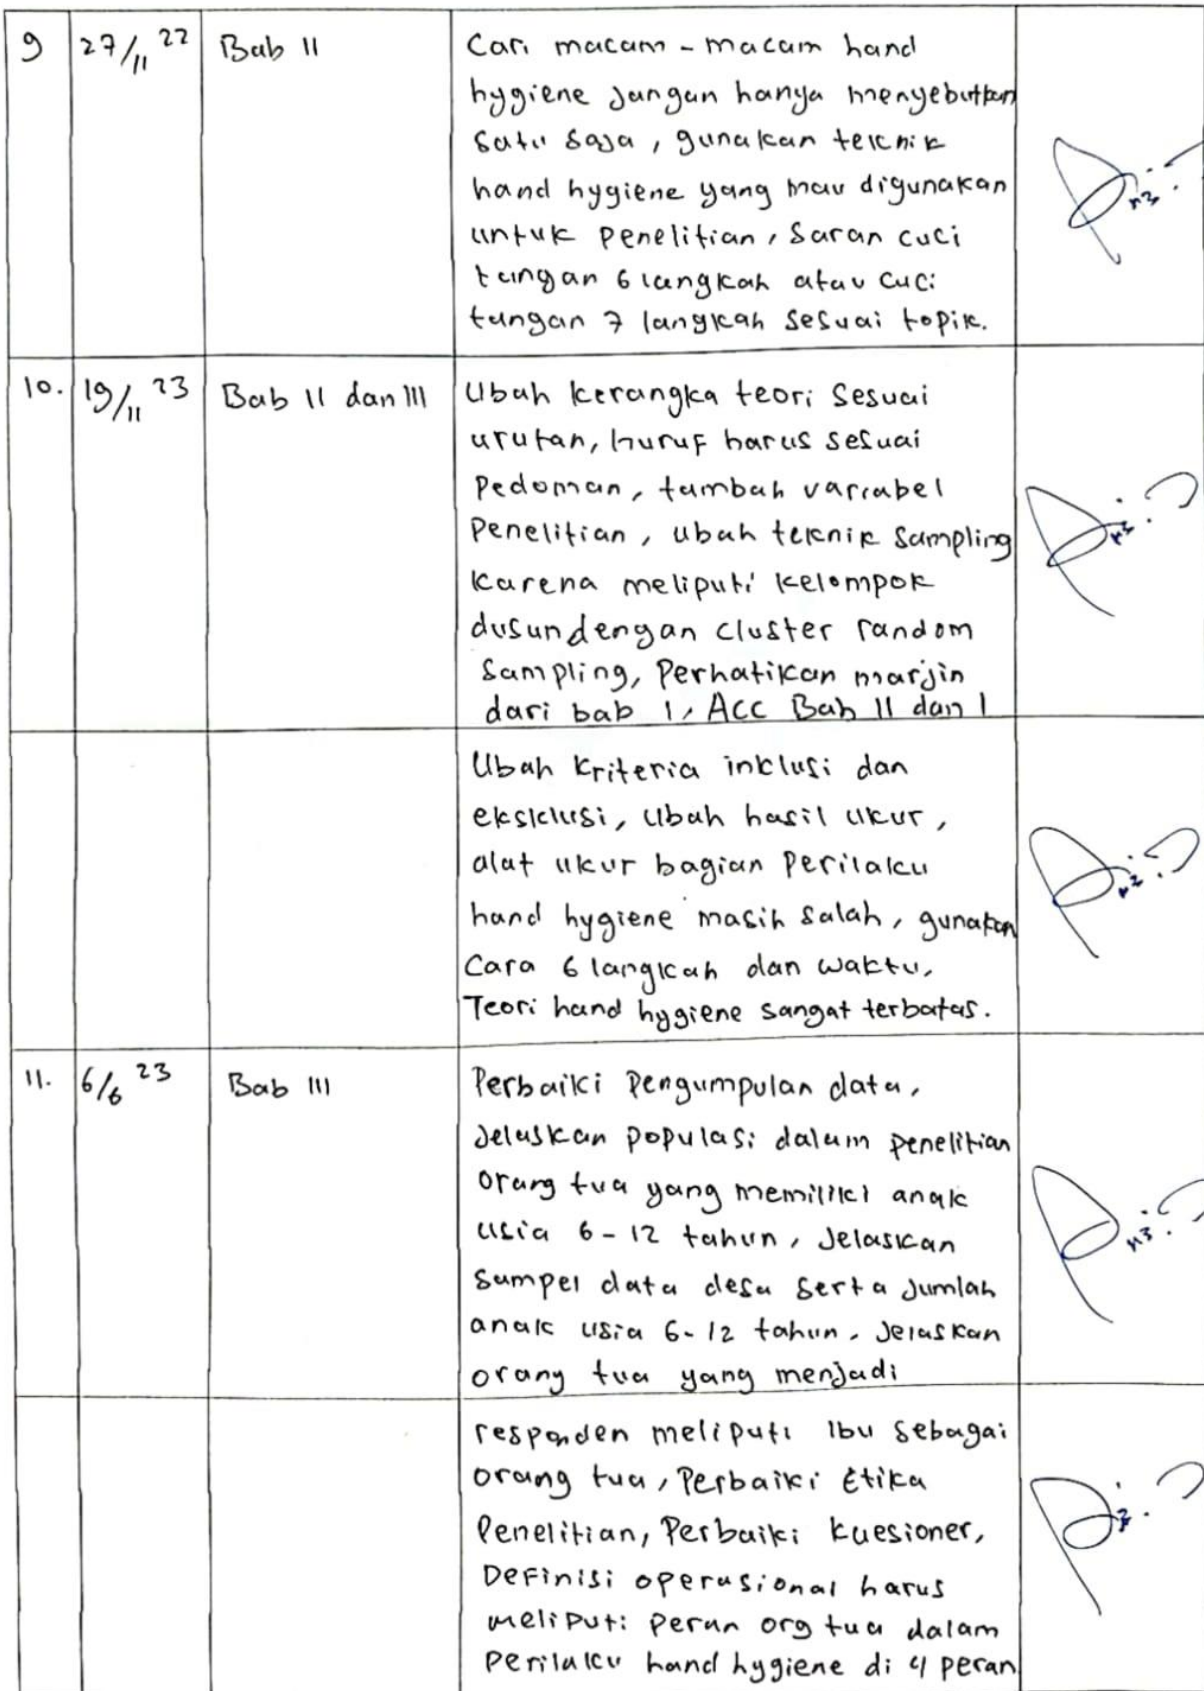 9 27/11 22 Bab II Cari macam-macam hand
hygiene jangan hanya menyebutkan
satu saja, gunakan teknik
hand hygiene yang mau digunakan
untuk penelitian, saran cuci
tangan 6 langkah atau cuci
tangan 7 langkah sesuai topik.
10. 19/11 23 Bab II dan III Ubah kerangka teori sesuai
urutan, huruf harus sesuai
Pedoman, tambah variabel
Penelitian, ubah teknik sampling
karena meliputi kelompok
dusun dengan cluster random
sampling, Perhatikan marjin
dari bab 1, ACC Bab II dan I
Ubah kriteria inklusi dan
eksklusi, ubah hasil ukur,
alat ukur bagian Perilaku
hand hygiene masih salah, gunakan
Cara 6 langkah dan waktu,
Teori hand hygiene sangat terbatas.
11. 6/6 23 Bab III Perbaiki Pengumpulan data,
Jelaskan populasi dalam penelitian
orang tua yang memiliki anak
usia 6-12 tahun, Jelaskan
sampel data desa serta jumlah
anak usia 6-12 tahun. Jelaskan
orang tua yang menjadi
responden meliputi Ibu sebagai
orang tua, Perbaiki Etika
Penelitian, Perbaiki kuesioner,
Definisi operasional harus
meliputi peran org tua dalam
Perilaku hand hygiene di 4 peran